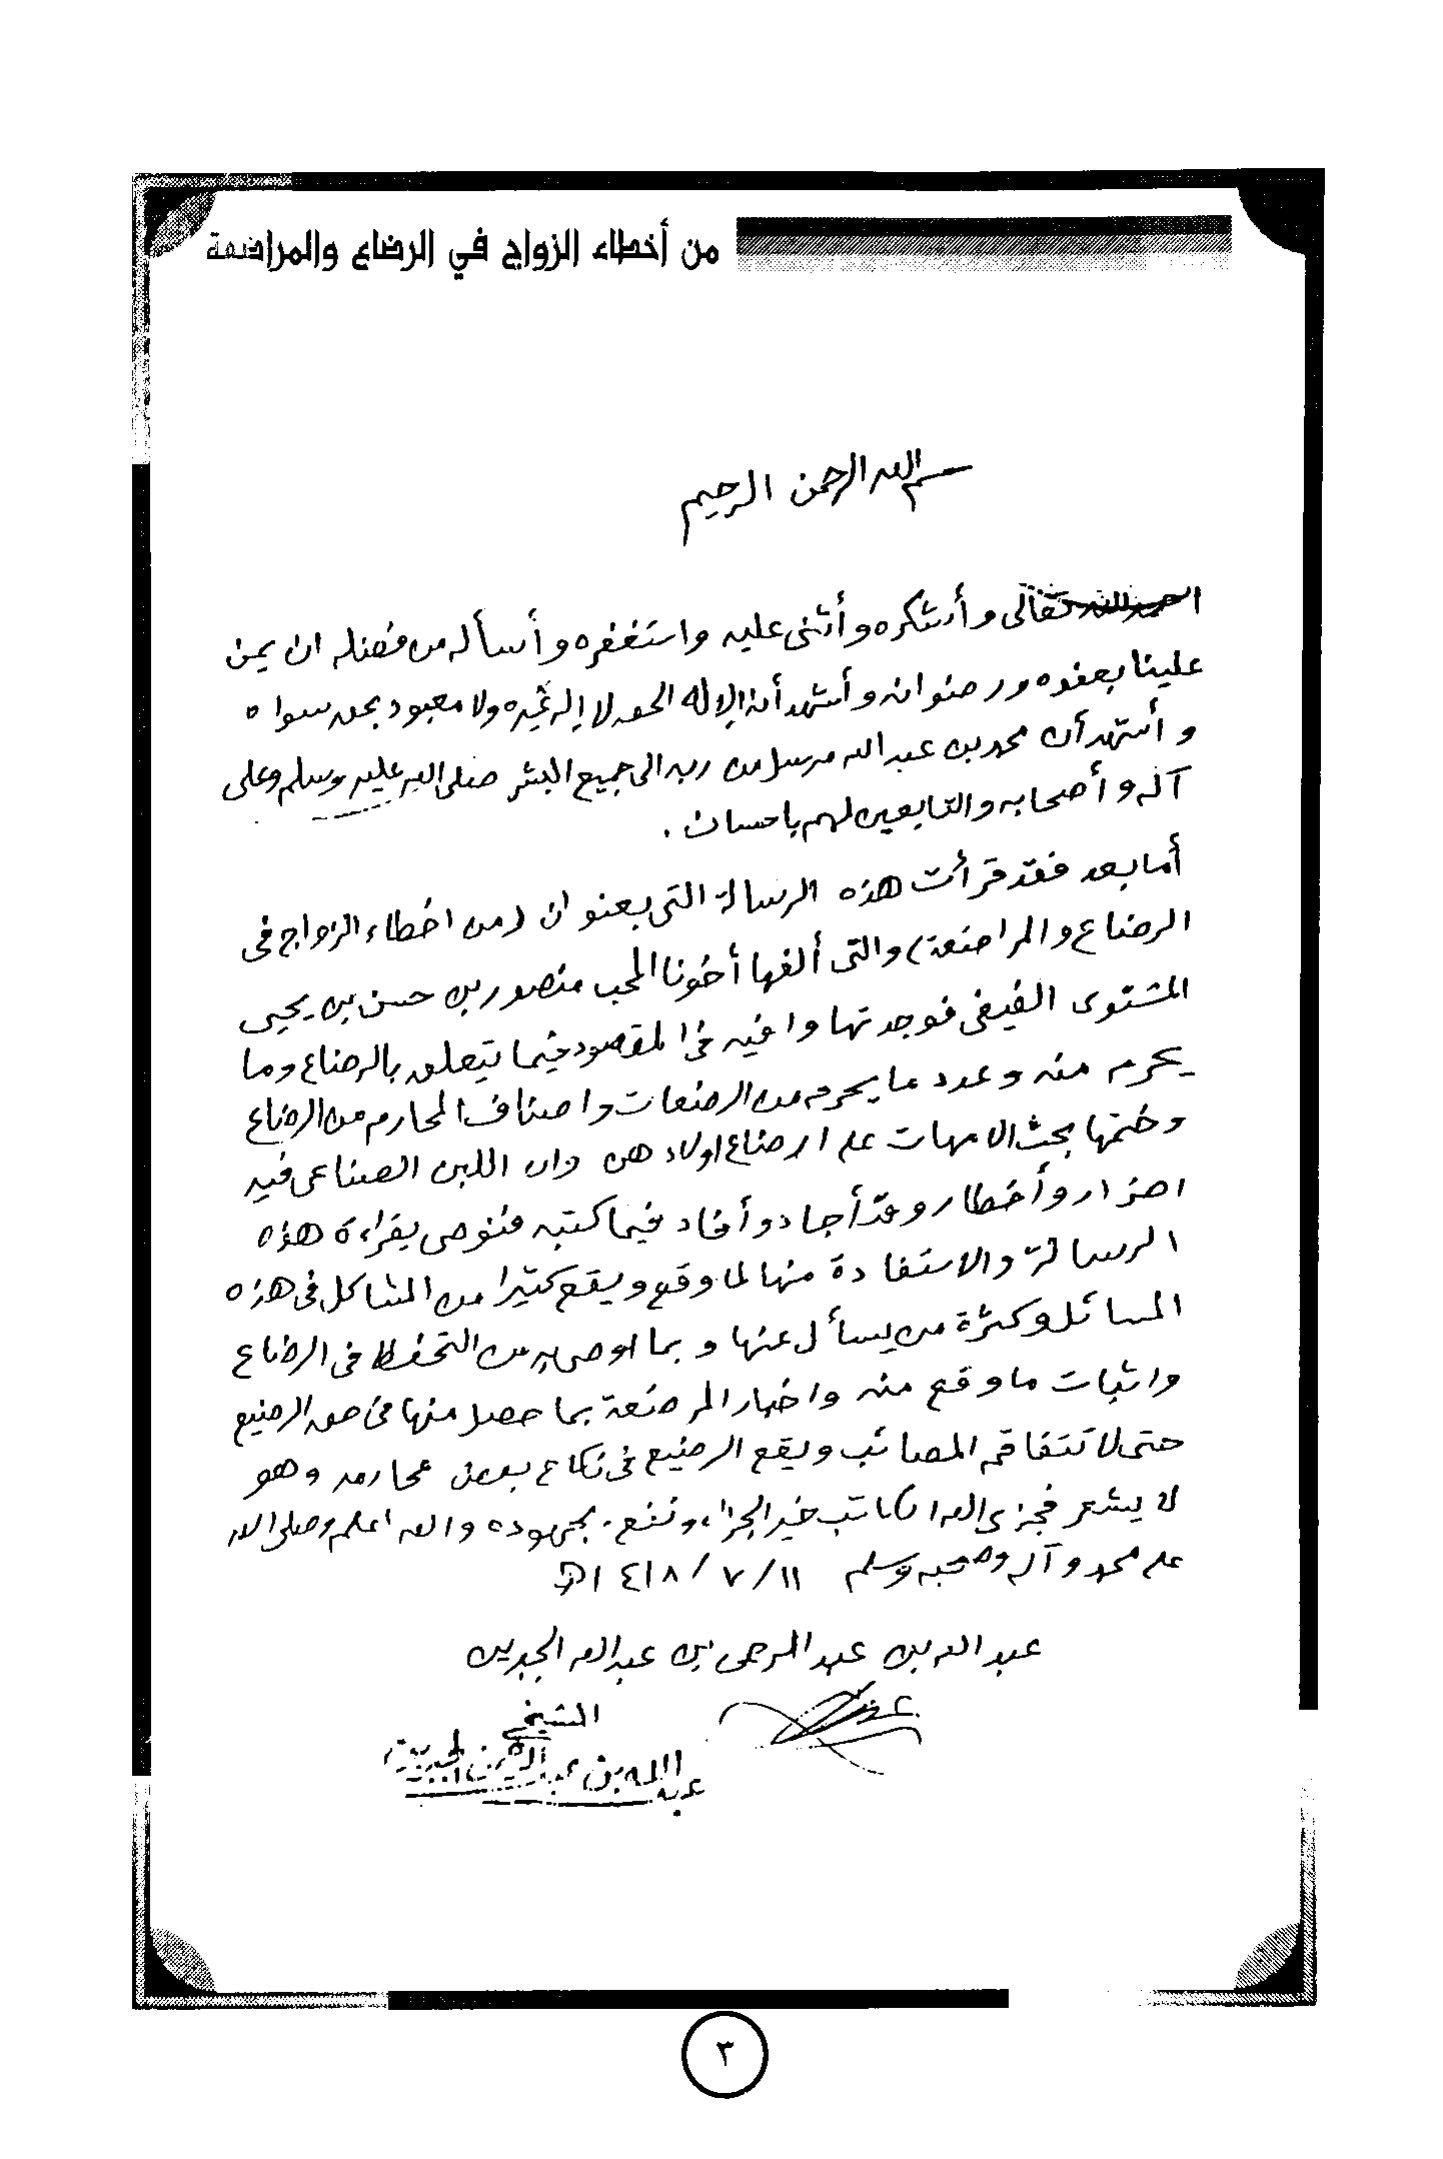 من أخطاء الزواج في الرضاع والمراضعة
بسم الله الرحمن الرحيم
الحمد لله تعالى وأشكره وأثني عليه واستغفره وأسأله من فضله ان يمن
علينا بعفوه ورضوانه وأشهد أن الإله الحق لا إله غيره ولا معبود بحق سواه
وأشهد أن محمد بن عبد الله مرسل من ربه الى جميع البشر صلى الله عليه وسلم وعلى
آله وأصحابه والتابعين لهم باحسان .
أما بعد فقد قرأت هذه الرسالة التي بعنوان (من اخطاء الزواج في
الرضاع والمراضعة) والتي ألفها أخونا المحب منصور بن حسن بن يحيى
المشنوي الفيفي فوجدتها وافيه في المقصود فيما يتعلق بالرضاع وما
يحرم منه وعدد ما يحرم من الرضعات واصناف المحارم من الرضاع
وختمها بحث الامهات على ارضاع اولادهن وان اللبن الصناعي فيه
اضرار وأخطار وقد أجاد وأفاد فيما كتبه فنوصي بقراءة هذه
الرسالة والاستفادة منها لما وقع ويقع كثيرا من المشاكل في هذه
المسائل وكثرة من يسأل عنها وبما اوصى به من التحفظ في الرضاع
واثبات ما وقع منه واخبار المرضعة بما حصل منها في حق الرضيع
حتى لا تتفاقم المصائب ويقع الرضيع في نكاح بعض محارمه وهو
لا يشعر فجزى الله الكاتب خير الجزاء ونفع بجهوده والله اعلم وصلى الله
على محمد وآله وصحبه وسلم ١١/٧/١٤١٨هـ
عبد الله بن عبد الرحمن بن عبد الله الجبرين
الشيخ
عبد الله بن عبد الرحمن الجبرين
٣